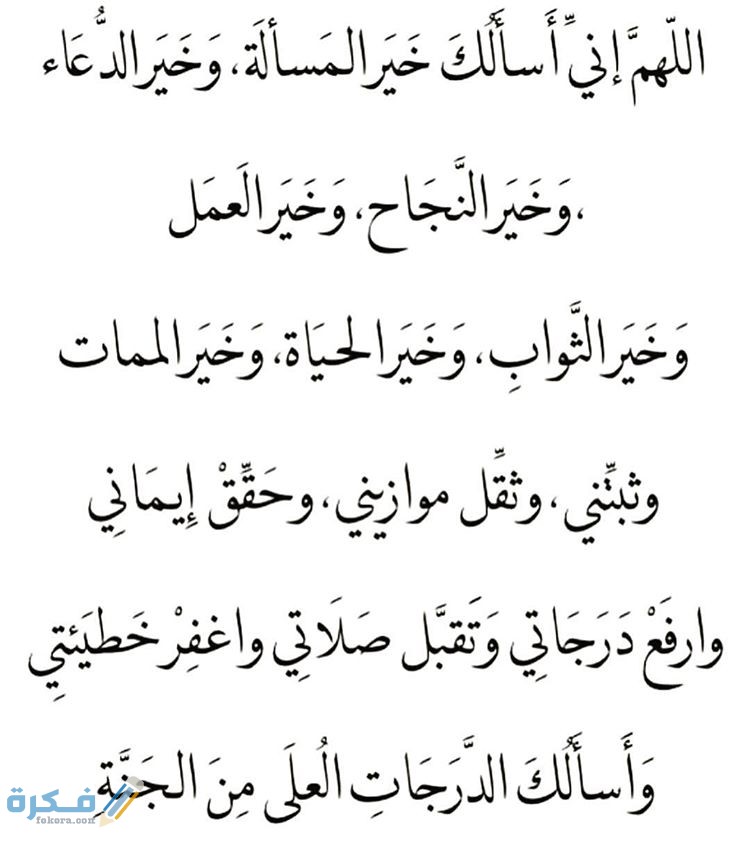 اللّهمَّ إنيِّ أَسأَلُكَ خَيَر المَسألَة، وَخَيَر الدُّعَاء
،وَخَيَر النَّجَاح، وَخَيَر العَمَل
وَخَيَر الثَّوابِ، وَخَيَر الحيَاة، وَخَيَر الممات
وثبتِّني، وثقِّل موازيني، وحَقِّقْ إِيمَانِي
وارفَعْ دَرَجَاتِي وَتَقبَّل صَلَاتِي واغفِرْ خَطيَئتِي
وَأَسأَلُكَ الدَّرَجَاتِ العُلَى مِنَ الجَنَّةِ
فكرة
fekera.com